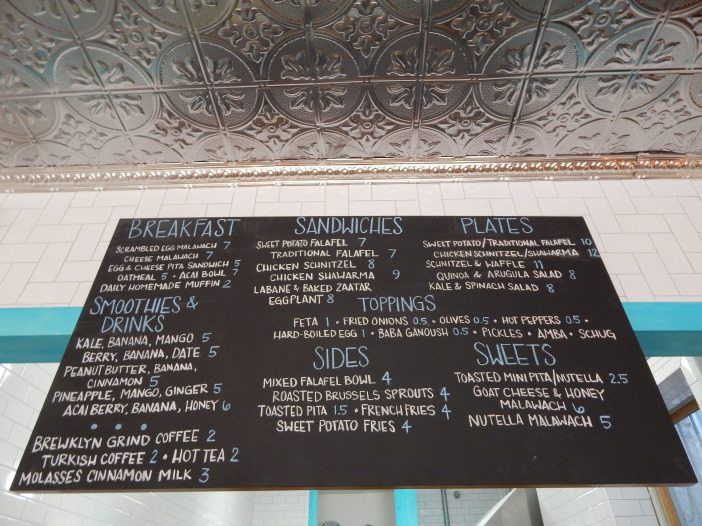 BREAKFAST
SCRAMBLED EGG MALAWACH 7
CHEESE MALAWACH 7
EGG & CHEESE PITA SANDWICH 5
OATMEAL 5 • ACAI BOWL 7
DAILY HOMEMADE MUFFIN 2
SMOOTHIES &
DRINKS
KALE, BANANA, MANGO 5
BERRY, BANANA, DATE 5
PEANUT BUTTER, BANANA,
CINNAMON 5
PINEAPPLE, MANGO, GINGER 5
ACAI BERRY, BANANA, HONEY 6
• • •
BREWKLYN GRIND COFFEE 2
TURKISH COFFEE 2 • HOT TEA 2
MOLASSES CINNAMON MILK 3
SANDWICHES
SWEET POTATO FALAFEL 7
TRADITIONAL FALAFEL 7
CHICKEN SCHNITZEL 8
CHICKEN SHAWARMA 9
LABANE & BAKED ZAATAR
EGGPLANT 8
PLATES
SWEET POTATO/TRADITIONAL FALAFEL 10
CHICKEN SCHNITZEL/SHAWARMA 12
SCHNITZEL & WAFFLE 11
QUINOA & ARUGULA SALAD 8
KALE & SPINACH SALAD 8
TOPPINGS
FETA 1 • FRIED ONIONS 0.5 • OLIVES 0.5 • HOT PEPPERS 0.5 •
HARD-BOILED EGG 1 • BABA GANOUSH 0.5 • PICKLES • AMBA • SCHUG
SIDES
MIXED FALAFEL BOWL 4
ROASTED BRUSSELS SPROUTS 4
TOASTED PITA 1.5 • FRENCH FRIES 4
SWEET POTATO FRIES 4
SWEETS
TOASTED MINI PITA/NUTELLA 2.5
GOAT CHEESE & HONEY
MALAWACH 6
NUTELLA MALAWACH 5